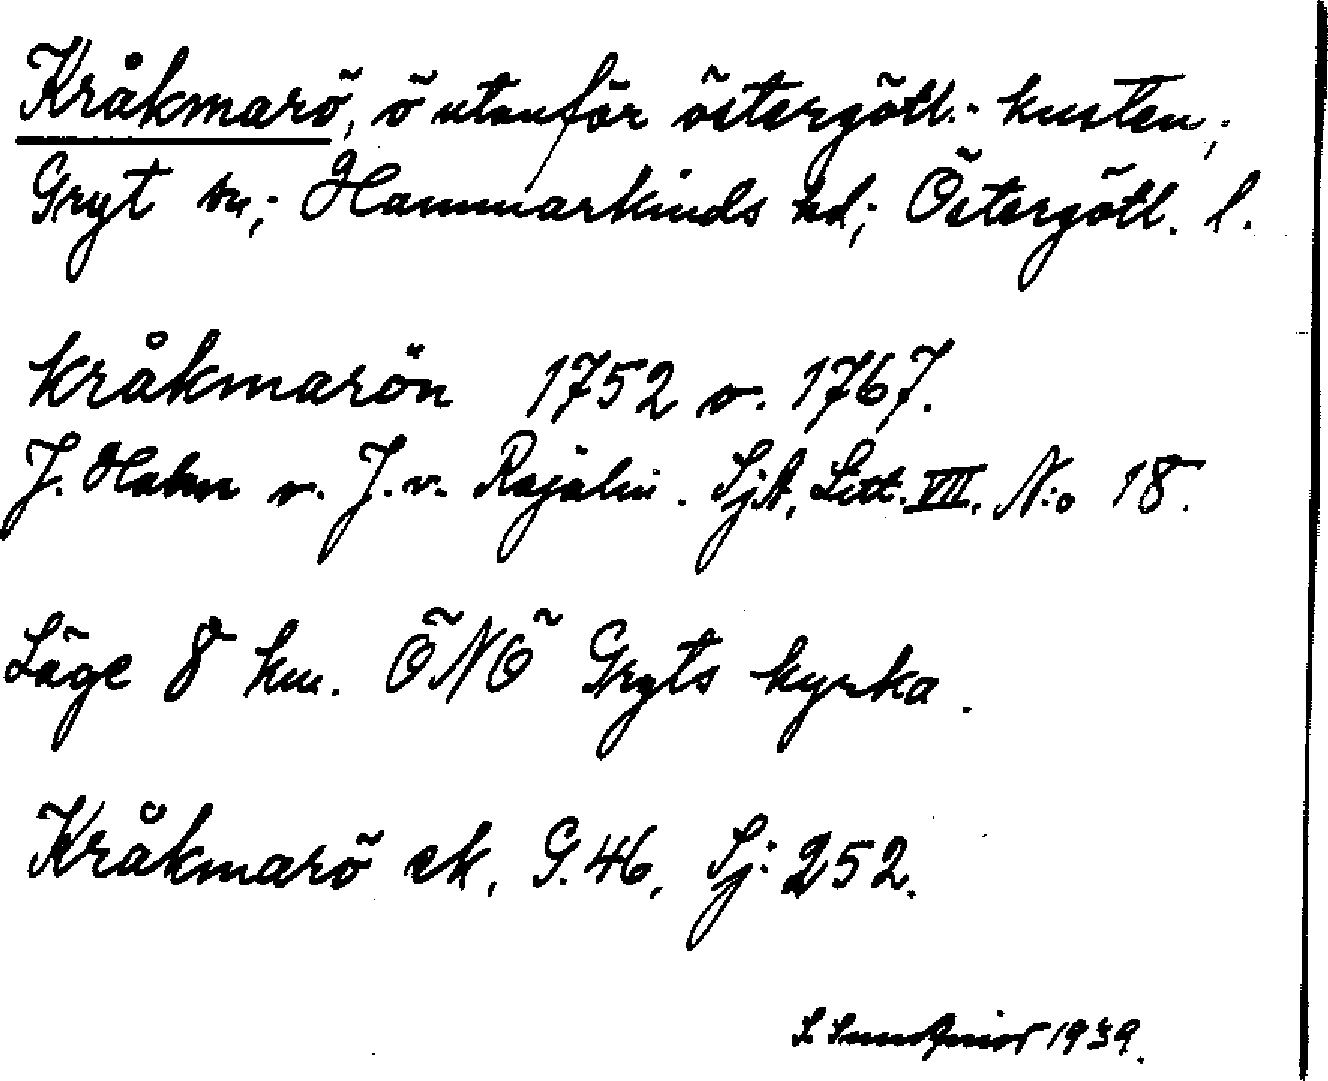 Kråkmarö, ö utanför östergötl.- kusten,;
Gryt sn,; Hammarkinds hd,; Östergötl. l.
Kråkmarön 1752 o. 1767.
J. Hahn o. J. v. Rajalin. SjA, Litt. VII. N:o 18.
Läge 8 km. ÖNÖ Gryts kyrka.
Kråkmarö ek. G. 46, Sj: 252.
S. 1939.